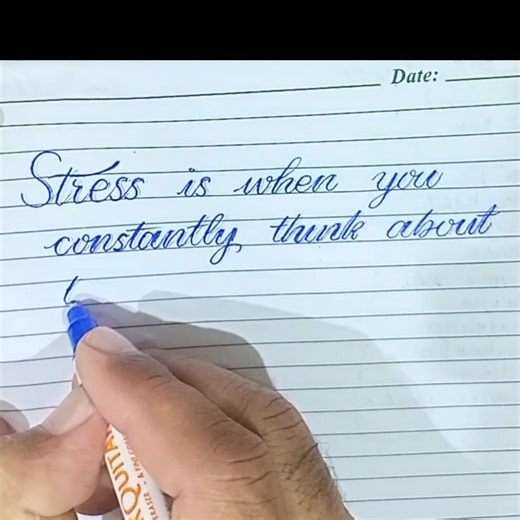 Date:
Stress is when you
constantly, think about